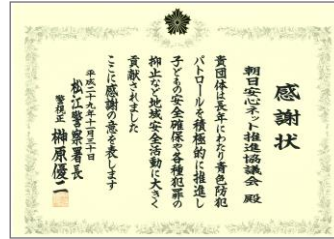 感謝状
朝日安心ネット推進協議会 殿
貴団体は長年にわたり青色防犯
パトロールを積極的に推進し
子どもの安全確保や各種犯罪の
抑止など地域安全活動に大きく
貢献されました
ここに感謝の意を表します
平成二十九年十一月三十日
松江警察署長
警視正 榊原優二